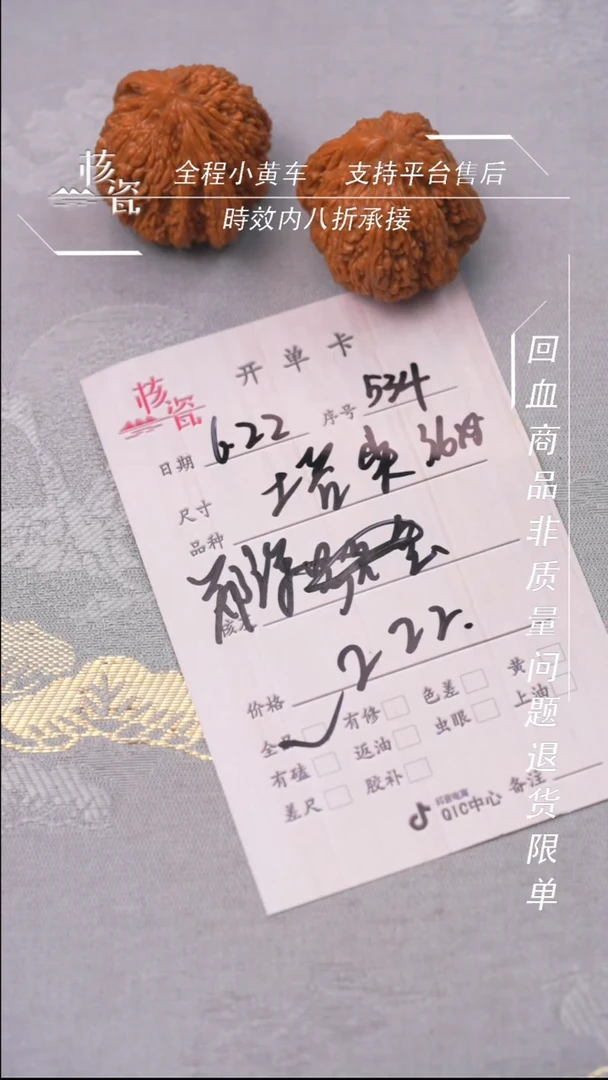 核瓷
全程小黄车 支持平台售后
時效内八折承接
回血商品非质量问题退货限单
开单卡
核瓷
日期 6.22 序号 534
尺寸
品种
价格 222.
全品 有修 色差 黄
有磕 返油 虫眼 上油
差尺 胶补
抖音电商
QIC中心 备注